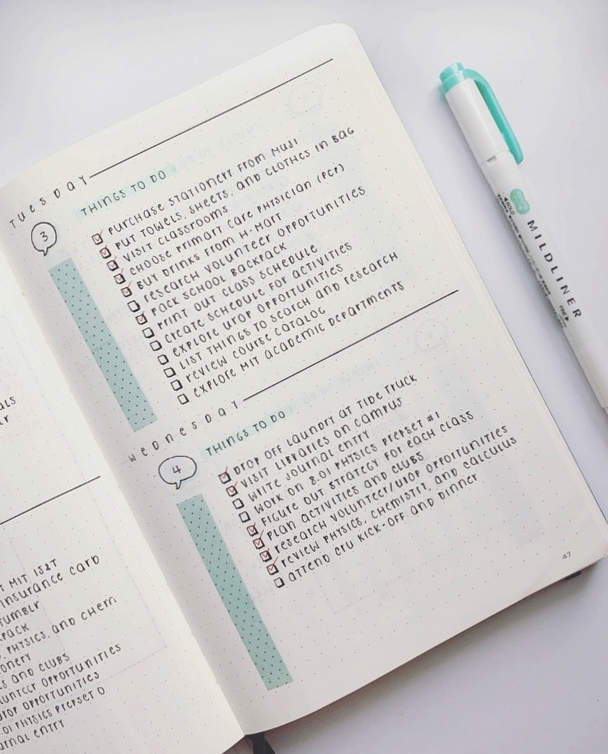 als
er
T MIT IS&T
insurance card
tumblr
pack
physics, and chem
onery
es and clubs
unteer opportunities
urop opportunities
.01 physics prepset 0
urnal entry
Tuesday
3
THINGS TO DO
PURCHASE STATIONERY FROM MUJI
PUT TOWELS, SHEETS, AND CLOTHES IN BAG
VISIT CLASSROOMS
CHOOSE PRIMARY CARE PHYSICIAN (PCP)
BUY DRINKS FROM H-MART
RESEARCH VOLUNTEER OPPORTUNITIES
PACK SCHOOL BACKPACK
PRINT OUT CLASS SCHEDULE
CREATE SCHEDULE FOR ACTIVITIES
EXPLORE UROP OPPORTUNITIES
LIST THINGS TO SEARCH AND RESEARCH
REVIEW COURSE CATALOG
EXPLORE MIT ACADEMIC DEPARTMENTS
Wednesday
4
THINGS TO DO
DROP OFF LAUNDRY AT TIDE TRUCK
VISIT LIBRARIES ON CAMPUS
WRITE JOURNAL ENTRY
WORK ON 8.01 PHYSICS PREPSET #1
FIGURE OUT STRATEGY FOR EACH CLASS
PLAN ACTIVITIES AND CLUBS
RESEARCH VOLUNTEER/UROP OPPORTUNITIES
REVIEW PHYSICS, CHEMISTRY, AND CALCULUS
ATTEND CRU KICK-OFF AND DINNER
47
MILDLINER